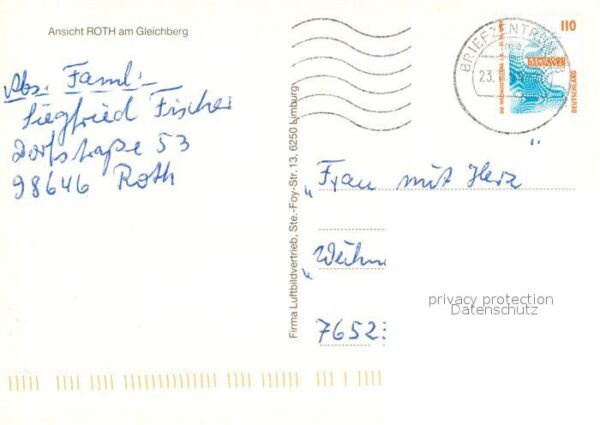 Ansicht ROTH am Gleichberg
Abs. Faml.-
Siegfried Fischer
Dorfstraße 53
98646 Roth
Firma Luftbildvertrieb, Ste.-Foy-Str. 13, 6250 Limburg
BRIEFZENTRUM
23.
110
DEUTSCHLAND
"Frau mit Herz"
"Weihn
7652
privacy protection
Datenschutz